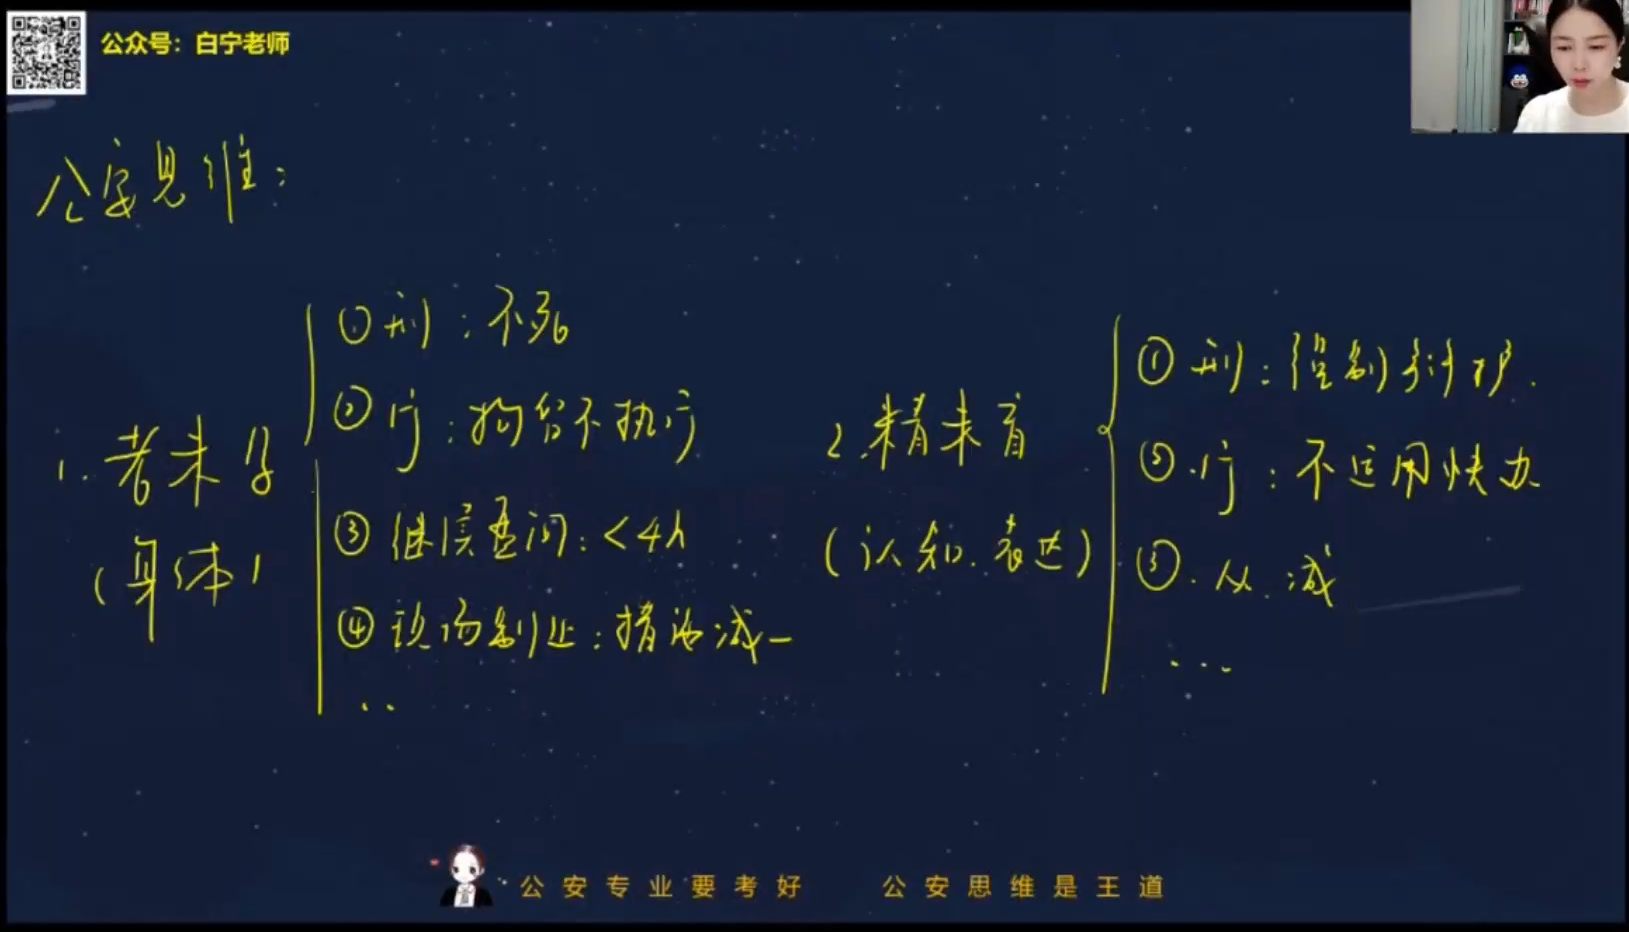 公众号：白宁老师
公安思维：
1. 老未孕
（身体）
①刑：不死
②行：拘留不执行
③继续盘问：<4h
④现场制止：措施减一
..
2.精未盲
（认知.表达）
①刑：强制辩护.
②.行：不适用快办
③.从.减
...
公安专业要考好 公安思维是王道